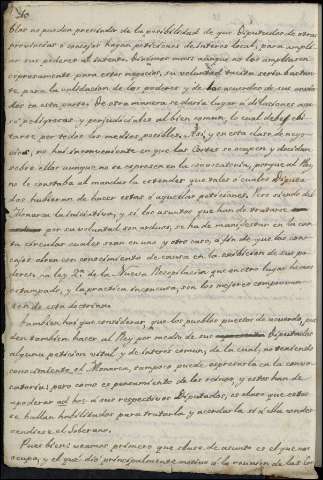 blos no pueden prescindir de la posibilidad de que Diputados de otras
provincias o concejos hagan peticiones de interes local, para ampli-
ar sus poderes al intento. Diximos mas: aunque no los ampliasen
expresamente para estos negocios, su voluntad tacita seria bastan-
te para la validacion de los poderes y de los acuerdos de sus envia-
dos en esta parte. De otra manera se daria lugar a dilaciones aca-
so peligrosas y perjudiciales al bien comun, lo cual debe evi-
tarse por todos los medios posibles. Asi, y en esta clase de nego-
cios, no hai inconveniente en que las Cortes se ocupen y decidan
sobre ellos aunque no se expresen en la convocatoria, porque al Rey
no le constaba al mandarla estender que tales o cuales Diputa-
dos hubieran de hacer estas o aquellas peticiones. Pero siendo del
Monarca la iniciativa, y si los asuntos que han de tratarse
por su voluntad son arduos, se ha de manifestar en la con-
ta circular cuales sean en uno y otro caso, a fin de que los con-
cejos obren con conocimiento de causa en la estension de sus po-
deres. La ley 2ª de la Nueva Recopilacion que en otro lugar hemos
estampado, y la practica inconcusa, son los mejores comprovan-
tes de esta doctrina.
Tambien hai que considerar que los pueblos puestos de acuerdo, pue-
den tambien hacer al Rey por medio de sus Diputados
alguna peticion vital y de interes comun, de la cual, no teniendo
conocimiento el Monarca, tampoco puede espresarla en la convo-
catoria; pero como es pensamiento de los reinos, y estos han de
apoderar ad hoc a sus respectivos Diputados, es claro que estos
se hallan habilitados para tratarla y acordarla si a ella conde-
cendiese el Soberano.
Pues bien: veamos primero que clase de asunto es el que nos
ocupa, y el que dió principalmente motivo a la reunion de las Cor-